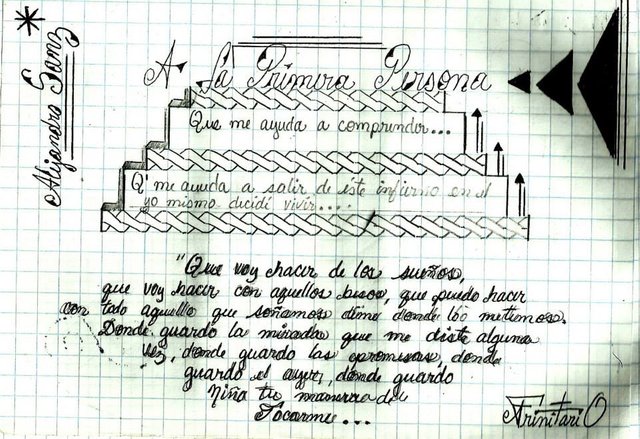 Alejandro Sanz
A La Primera Persona
Que me ayuda a comprender...
Q' me ayuda a salir de este infierno en el
yo mismo decidí vivir....
"Que voy hacer de los sueños,
que voy hacer con aquellos besos, que puedo hacer
con todo aquello que soñamos dime donde lo metemos.
Donde guardo la mirada que me diste alguna
vez, donde guardo las promesas, donde
guardo el ayer, dónde guardo
Niña tu manera de
Tocarme...
TrinitariO